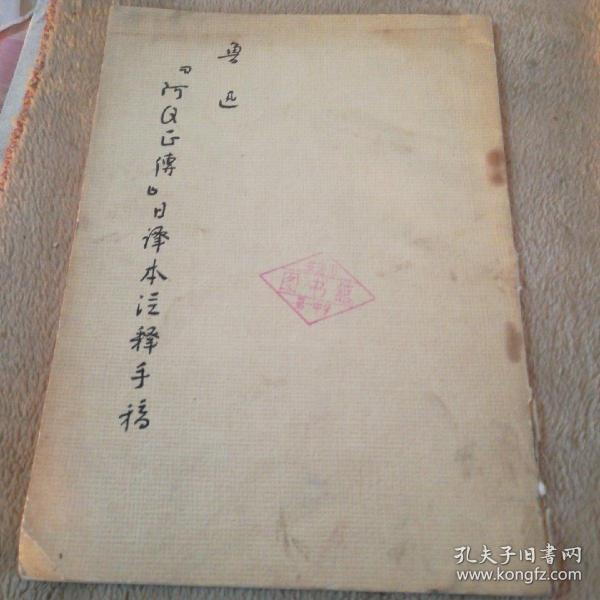 鲁迅
『阿Q正傳』日译本注释手稿
图书馆
孔夫子旧書网
www.kongfz.com